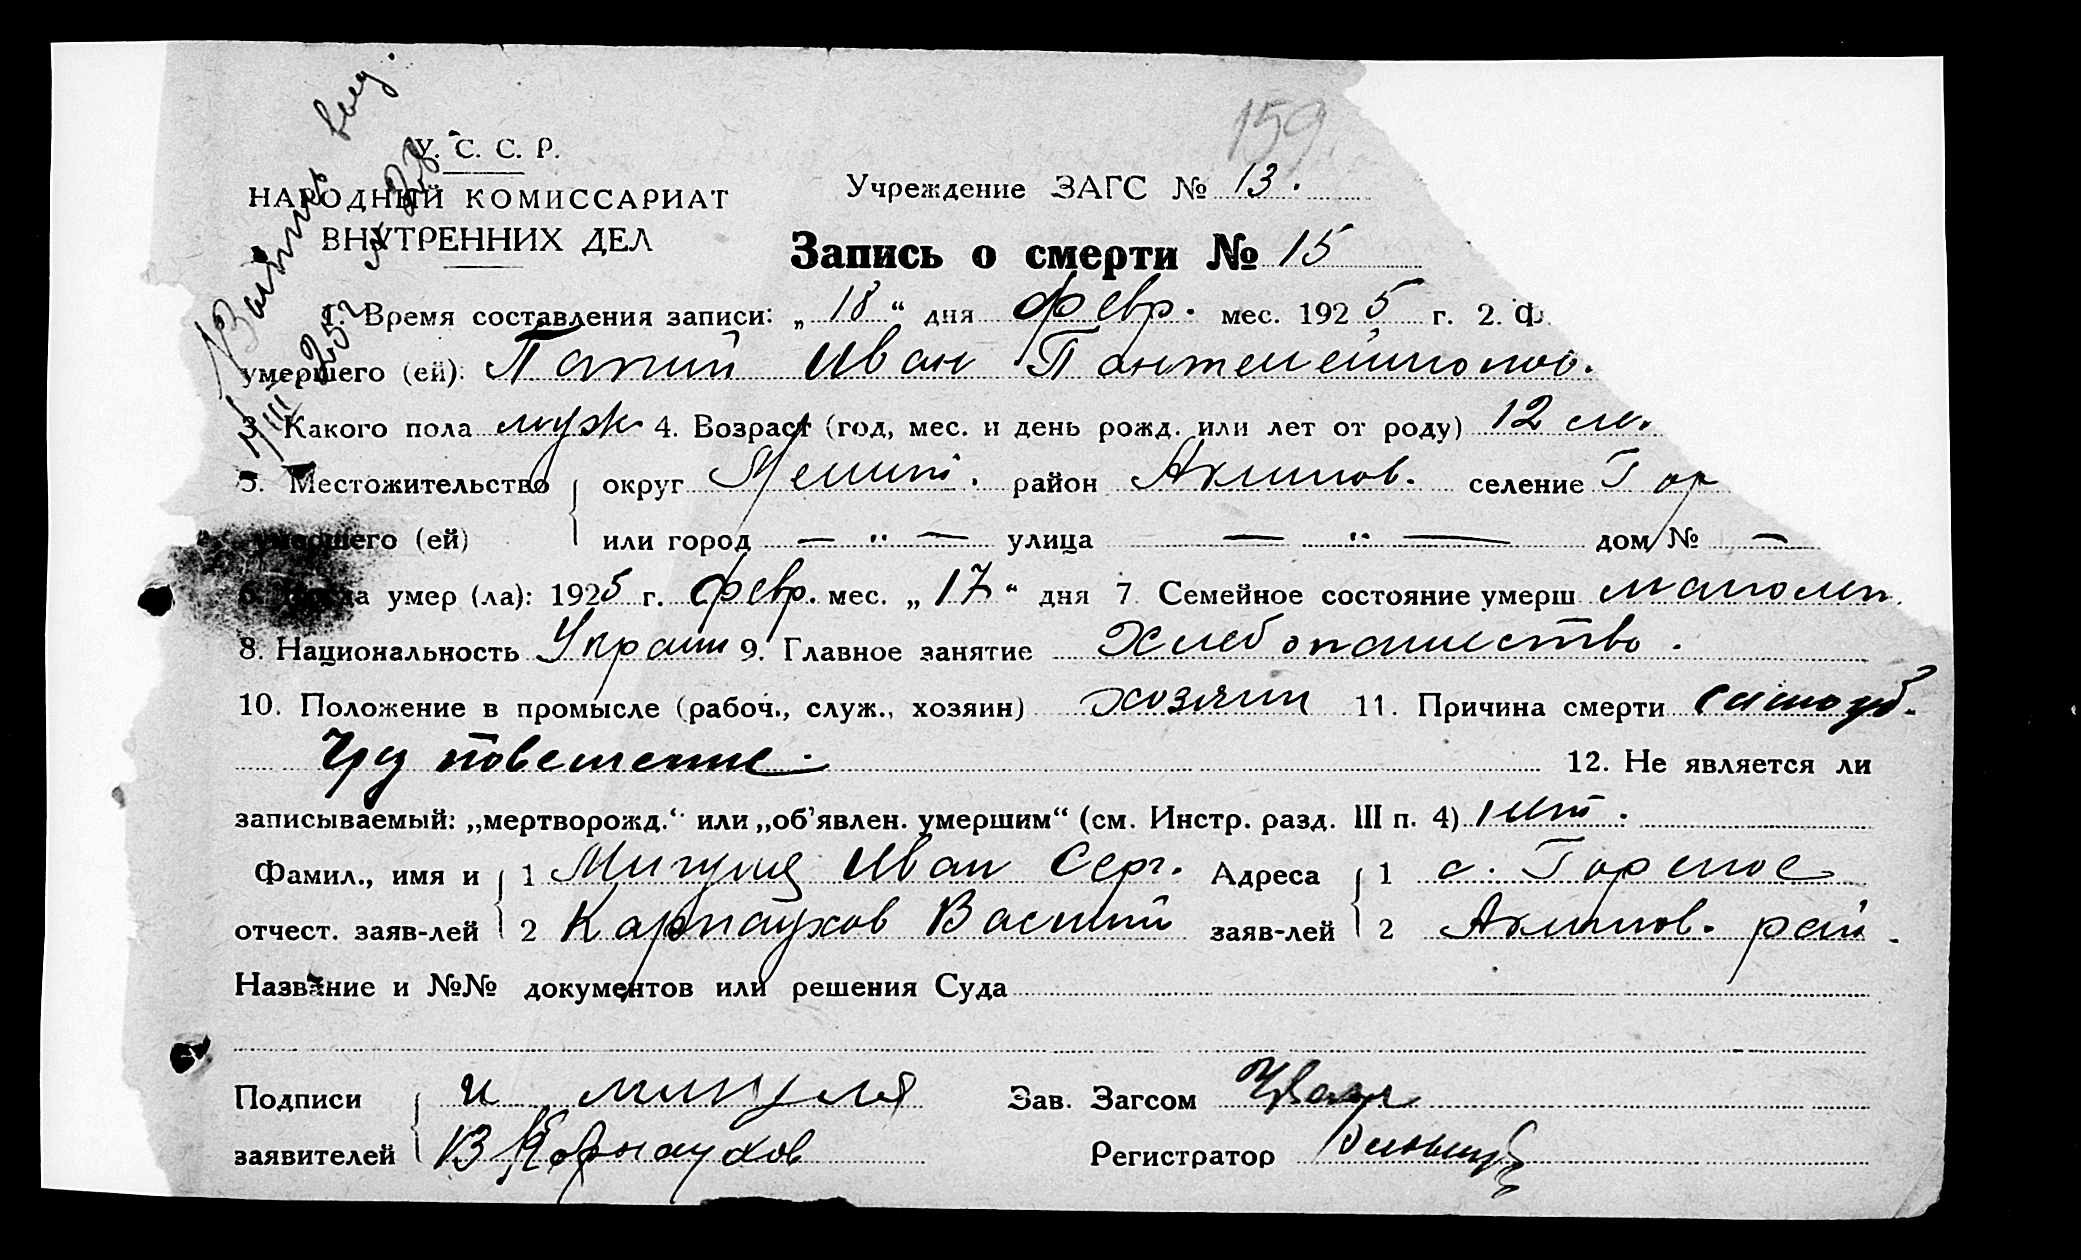 159
У. С. С. Р.
НАРОДНЫЙ КОМИССАРИАТ
ВНУТРЕННИХ ДЕЛ
Учреждение ЗАГС № 13.
Запись о смерти № 15
1. Время составления записи: „ 18 “ дня февр. мес. 1925 г. 2. Ф.
умершего (ей): Папий Иван Пантелеймонов.
3. Какого пола муж 4. Возраст (год, мес. и день рожд. или лет от роду) 12
5. Местожительство округ Мелит. район Акимов. селение Гор
умершего (ей) или город — „ — улица — „ — дом № —
6. Когда умер (ла): 1925 г. февр. мес. „ 17 “ дня 7. Семейное состояние умерш. малолет.
8. Национальность Украин 9. Главное занятие Хлебопашество.
10. Положение в промысле (рабоч., служ., хозяин) хозяин 11. Причина смерти самоуб.
чрез повешение.
12. Не является ли
записываемый: „мертворожд.“ или „об’явлен. умершим“ (см. Инстр. разд. III п. 4) нет.
Фамил., имя и 1 Мигуля Иван Серг. Адреса 1 с. Горелое
отчест. заяв-лей 2 Карнаухов Василий заяв-лей 2 Акимов. рай.
Название и №№ документов или решения Суда
Подписи И Мигуля Зав. Загсом
заявителей В Карнаухов Регистратор